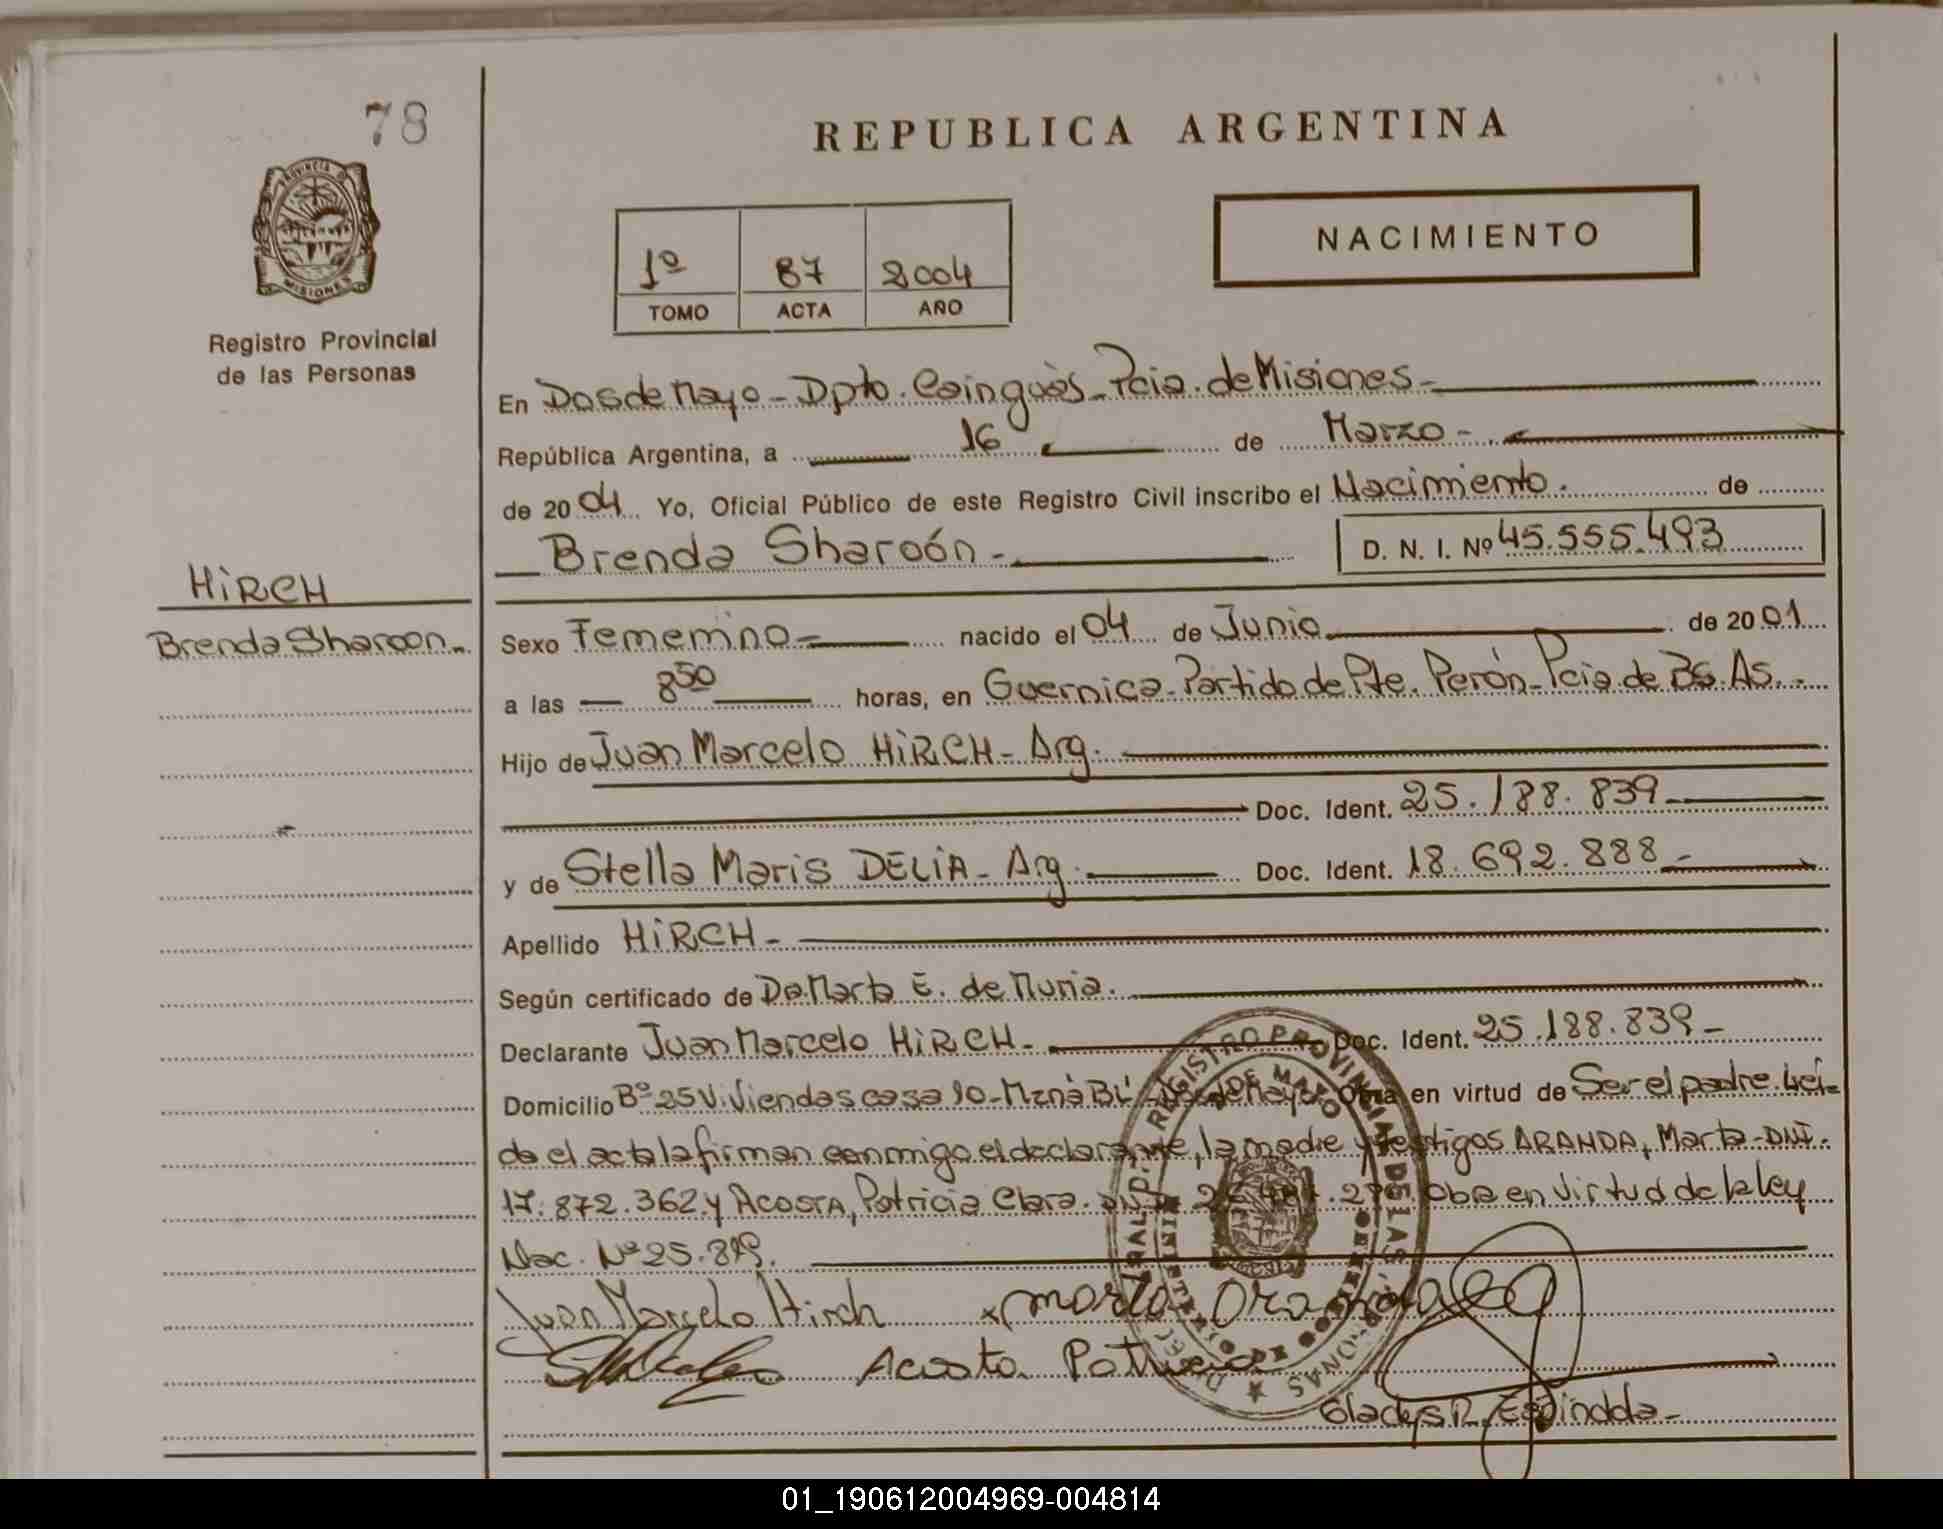 78
REPUBLICA ARGENTINA
NACIMIENTO
1º 87 2004
TOMO ACTA AÑO
PROVINCIA D
MISIONES
Registro Provincial
de las Personas
En Dos de Mayo - Dpto. Cainguàs - Pcia. de Misiones -
República Argentina, a 16 de Marzo -
de 2004 Yo, Oficial Público de este Registro Civil inscribo el Nacimiento. de
Brenda Sharoón - D. N. I. Nº 45.555.493
HiRCH
Brenda Sharoon -
Sexo Femenino - nacido el 04 de Junio de 2001
a las 8 50 horas, en Guernica - Partido de Pte. Perón - Pcia de Bs. As. -
Hijo de Juan Marcelo HiRCH - Arg.
Doc. Ident. 25.188.839
y de Stella Maris DELiA - Arg. Doc. Ident. 18.692.888 -
Apellido HiRCH -
Según certificado de Da. Marta E. de Muria.
Declarante Juan Marcelo HiRCH - Doc. Ident. 25.188.839 -
Domicilio Bº 25 Viviendas casa 10 - Mzna BL Dos de Mayo Obra en virtud de Ser el padre. Leí-
da el acta la firman conmigo el declarante, la madre y testigos ARANDA, Marta - DNI.
17.872.362 y ACOSTA, Patricia Clara. DNI Obra en virtud de la ley
Nac. Nº 25.819.
Juan Marcelo Hirch x marta
Acosta Patricia
Gladys R. Espindola -
REGISTRO PROVINCIAL DE LAS PERSONAS
DOS DE MAYO
01_190612004969-004814